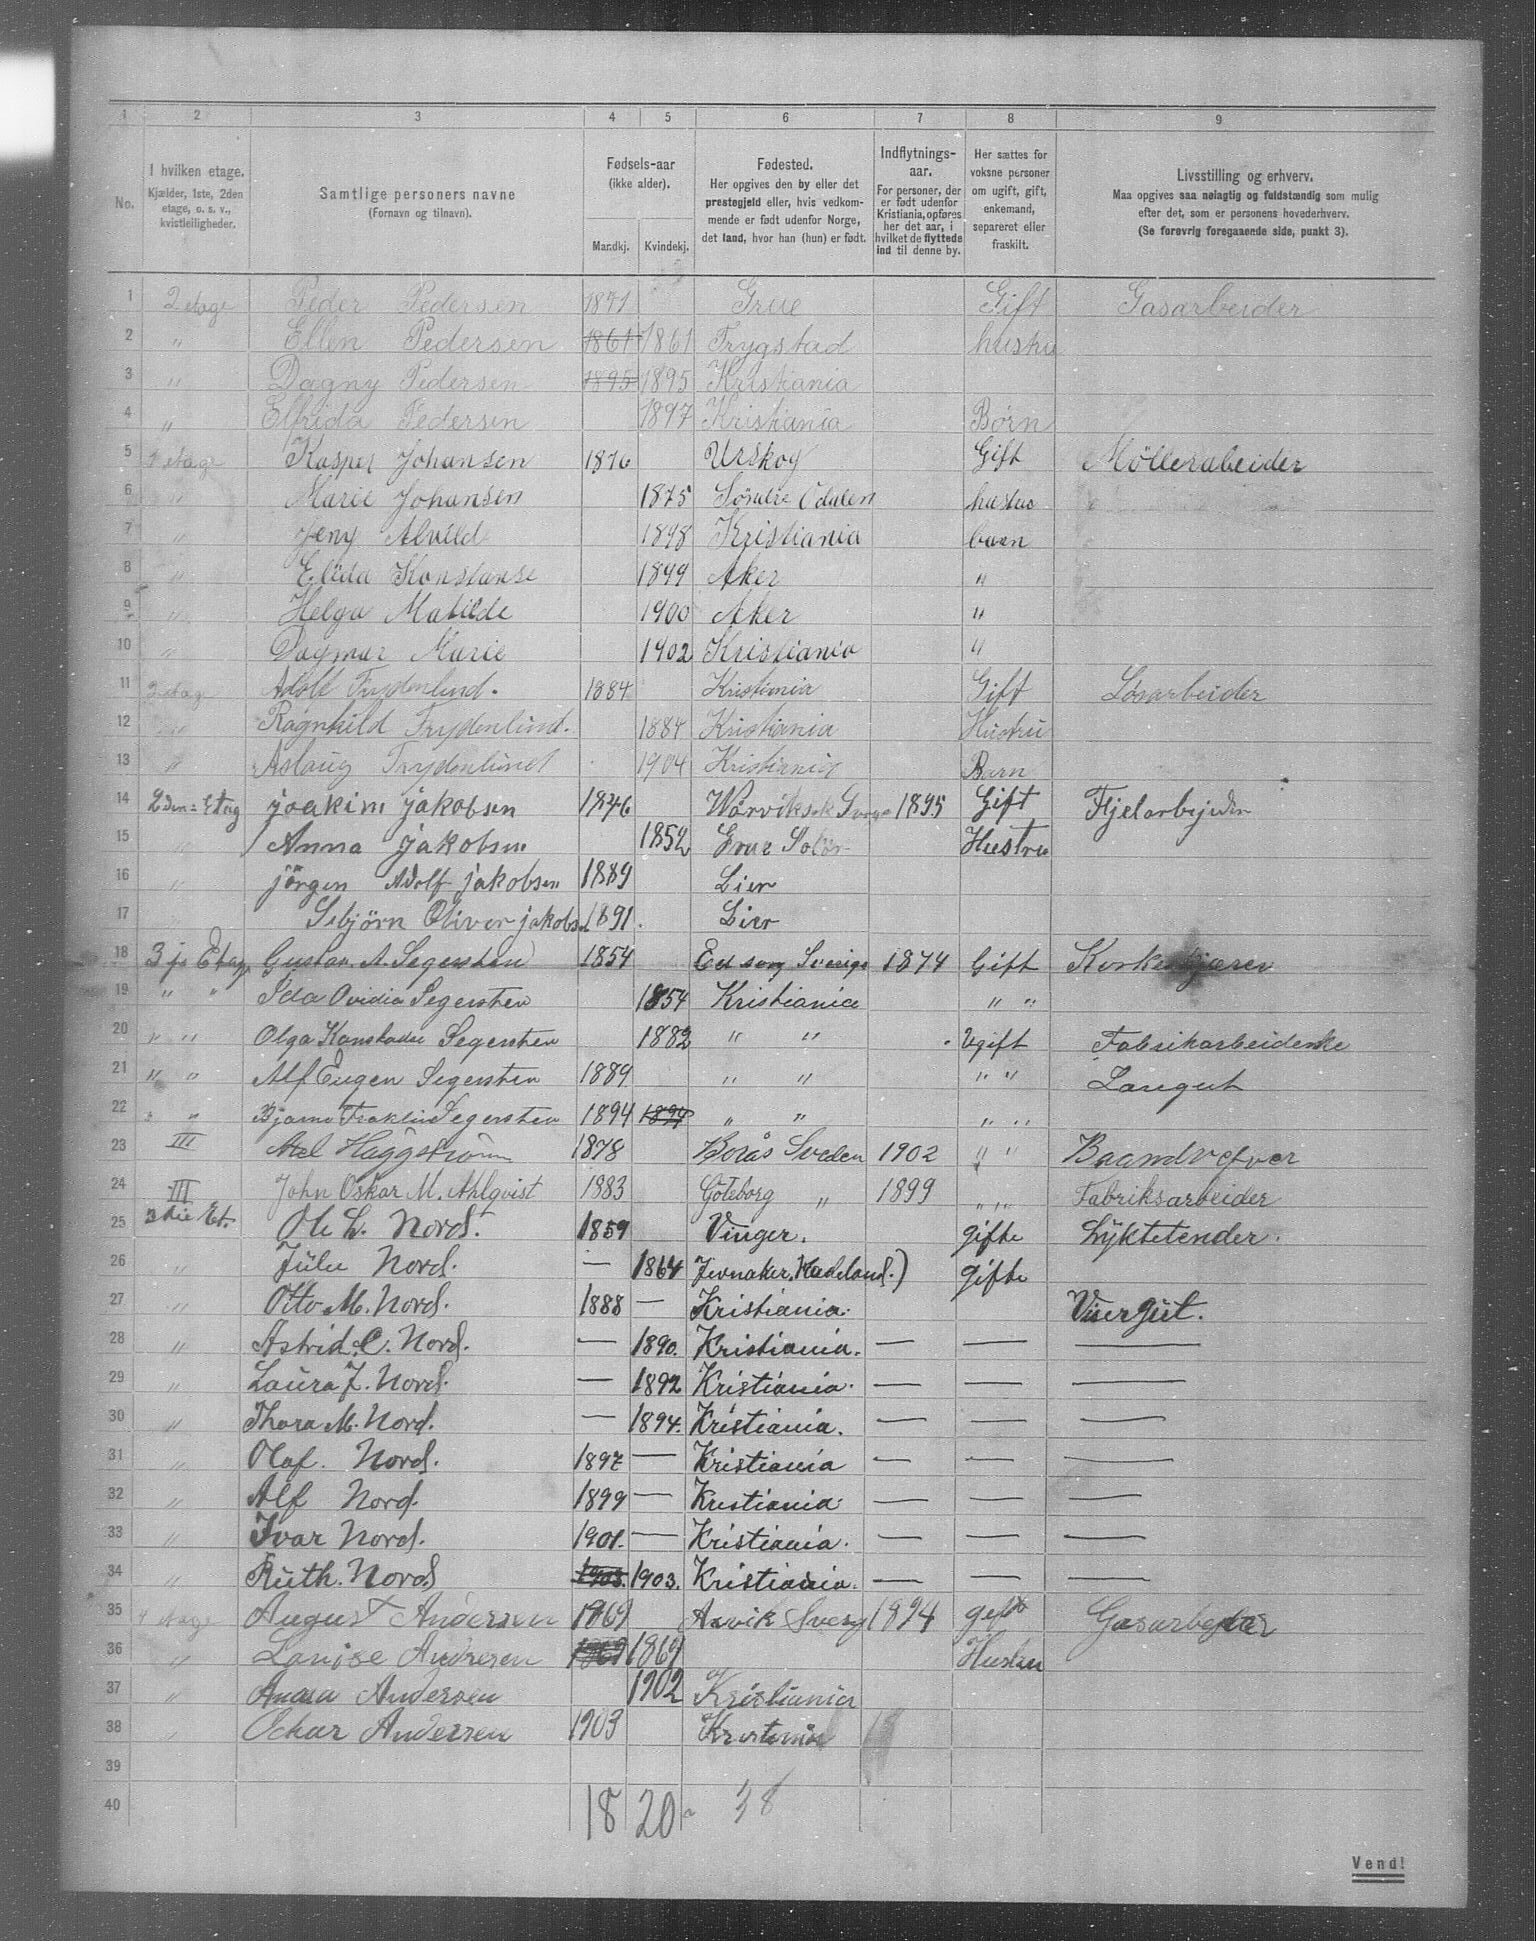 1 2 3 4 5 6 7 8 9
No.
I hvilken etage.
Kjælder, 1ste, 2den
etage, o. s. v.,
kvistleiligheder.
Samtlige personers navne
(Fornavn og tilnavn).
Fødsels-aar
(ikke alder).
Mandkj. Kvindekj.
Fødested.
Her opgives den by eller det
prestegjeld eller, hvis vedkom-
mende er født udenfor Norge,
det land, hvor han (hun) er født.
Indflytnings-
aar.
For personer, der
er født udenfor
Kristiania, opføres
her det aar, i
hvilket de flyttede
ind til denne by.
Her sættes for
voksne personer
om ugift, gift,
enkemand,
separeret eller
fraskilt.
Livsstilling og erhverv.
Maa opgives saa nøiagtig og fuldstændig som mulig
efter det, som er personens hovederhverv.
(Se forøvrig foregaaende side, punkt 3).
1 2 etage Peder Pedersen 1871 Grue Gift Gasarbeider
2 " Ellen Pedersen 1861 1861 Trygstad hustru
3 " Dagny Pedersen 1895 1895 Kristiania
4 " Elfrida Pedersen 1897 Kristiania Børn
5 etage Kasper Johansen 1876 Urskog Gift Möllerabeider
6 " Marie Johansen 1875 Søndre Odalen hustru
7 " Jeny Alvild 1898 Kristiania barn
8 " Elida Konstanse 1899 Aker "
9 " Helga Matilde 1900 Aker "
10 " Dagmar Marie 1902 Kristiania "
11 2 etage Adolf Frydenlund. 1884 Kristiania Gift Løsarbeider
12 " Ragnhild Frydenlund. 1884 Kristiania Hustru
13 " Aslaug Frydenlund 1904 Kristiania Barn
14 2den Etag joakim jakobsen 1846 1895 Gift Fjelarbejder
15 " Anna jakobsen 1852 Grue Solør Hustru
16 " jörgen Adolf jakobsen 1889 Lier
17 Sebjörn Oliver jakobsen 1891. Lier
18 3je Etage Gustav. A. Segersten 1854 Ed Sverige 1874 Gift
19 " " Ida Ovidia Segersten 1854 Kristiania " "
20 " " Olga Segersten 1882 " " Ugift Fabrikarbeiderske
21 " " Alf Eugen Segersten 1889 " " " "
22 " " Bjarne Franklin Segersten 1894 1894 " " " "
23 III Axel Häggström 1878 Borås Sveden 1902 " " Baandvefver
24 III John Oskar M. Ahlqvist 1883 Göteborg " 1899 " " Fabriksarbeider
25 3die Et. Ole L. Nord. 1859 Vinger. gifte Lyktetender.
26 " Julie Nord. — 1864 Jevnaker, Hadeland.) gifte
27 " Otto M. Nord. 1888 — Kristiania. Visergut.
28 " Astrid. C. Nord. — 1890. Kristiania. — — —
29 " Laura J. Nord. — 1892 Kristiania. — — —
30 " Thora M. Nord. — 1894. Kristiania. — — —
31 " Olaf. Nord. 1897 — Kristiania — — —
32 " Alf Nord. 1899 — Kristiania. — — —
33 " Ivar Nord. 1901. — Kristiania. — — —
34 " Ruth. Nord. 1903. 1903. Kristiania. — — —
35 4 etage August Andersen 1869 Arvik Sverg 1894 gift Gasarbejder
36 " Louise Andresen 1869 1869 Hustru
37 " Anna Andersen 1902 Kristiania
38 " Ockar Andersen 1903 Kristiania
39
40 18 20 38
Vend!